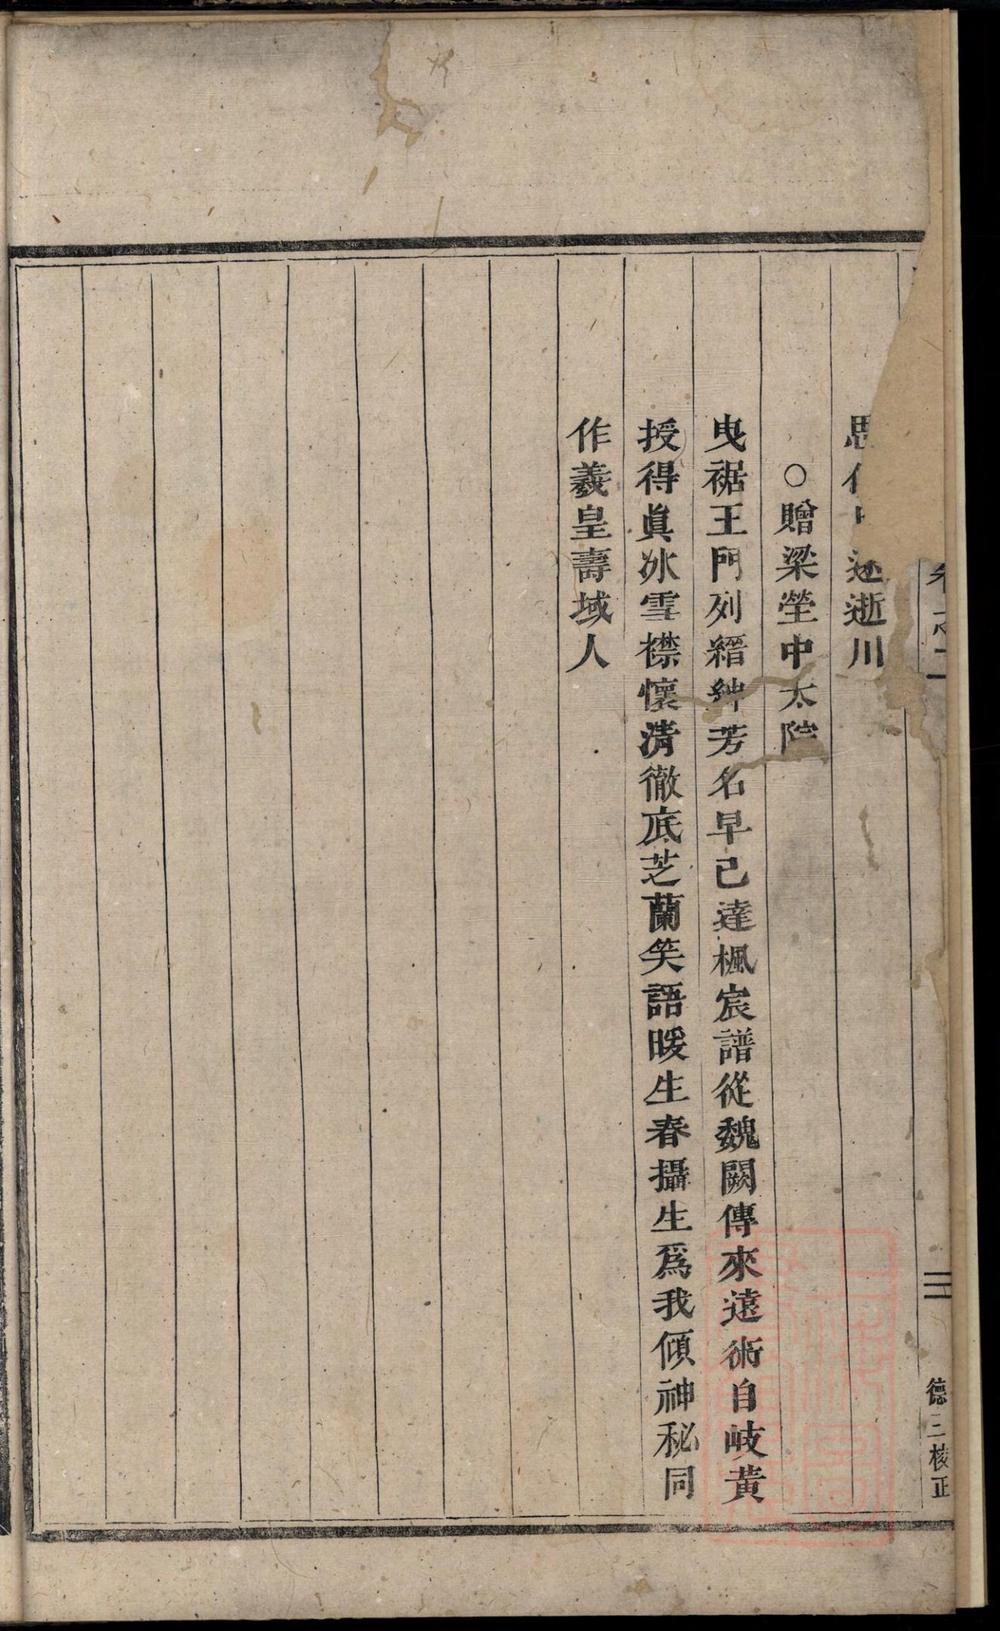 思
逝川
○贈梁塋中太院
曳裾王門列縉紳芳名早已達楓宸譜從魏闕傳來遠術自岐黃
授得眞冰雪襟懷清徹底芝蘭笑語暖生春攝生爲我傾神秘同
作羲皇壽域人
德三校正